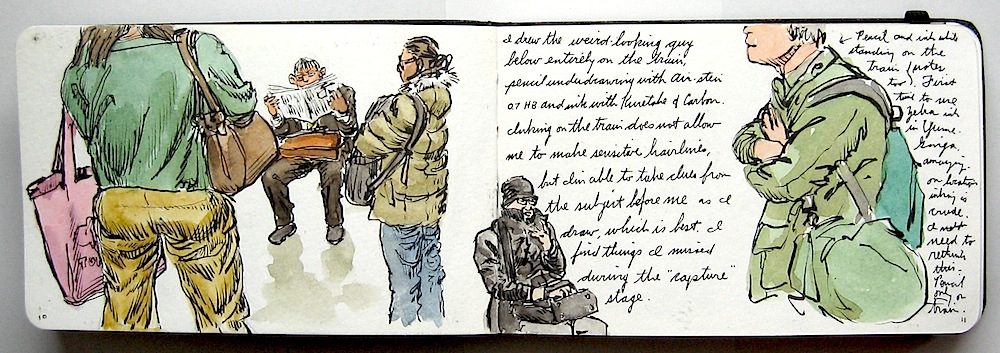 I drew the weird-looking guy
below entirely on the train,
pencil underdrawing with
HB and ink with Kuretake & Carbon.
Inking on the train does not allow
me to make sensitive hairlines,
but I'm able to take clues from
the subject before me as I
draw, which is best. I
find things I missed
during the "capture"
stage.
Pencil and ink while
standing on the
train (notes
too). First
time to use
zebra ink
in
amazing.
on location
inking is
crude.
I
need to
rethink
this.
Pencil
only on
train.
10
11